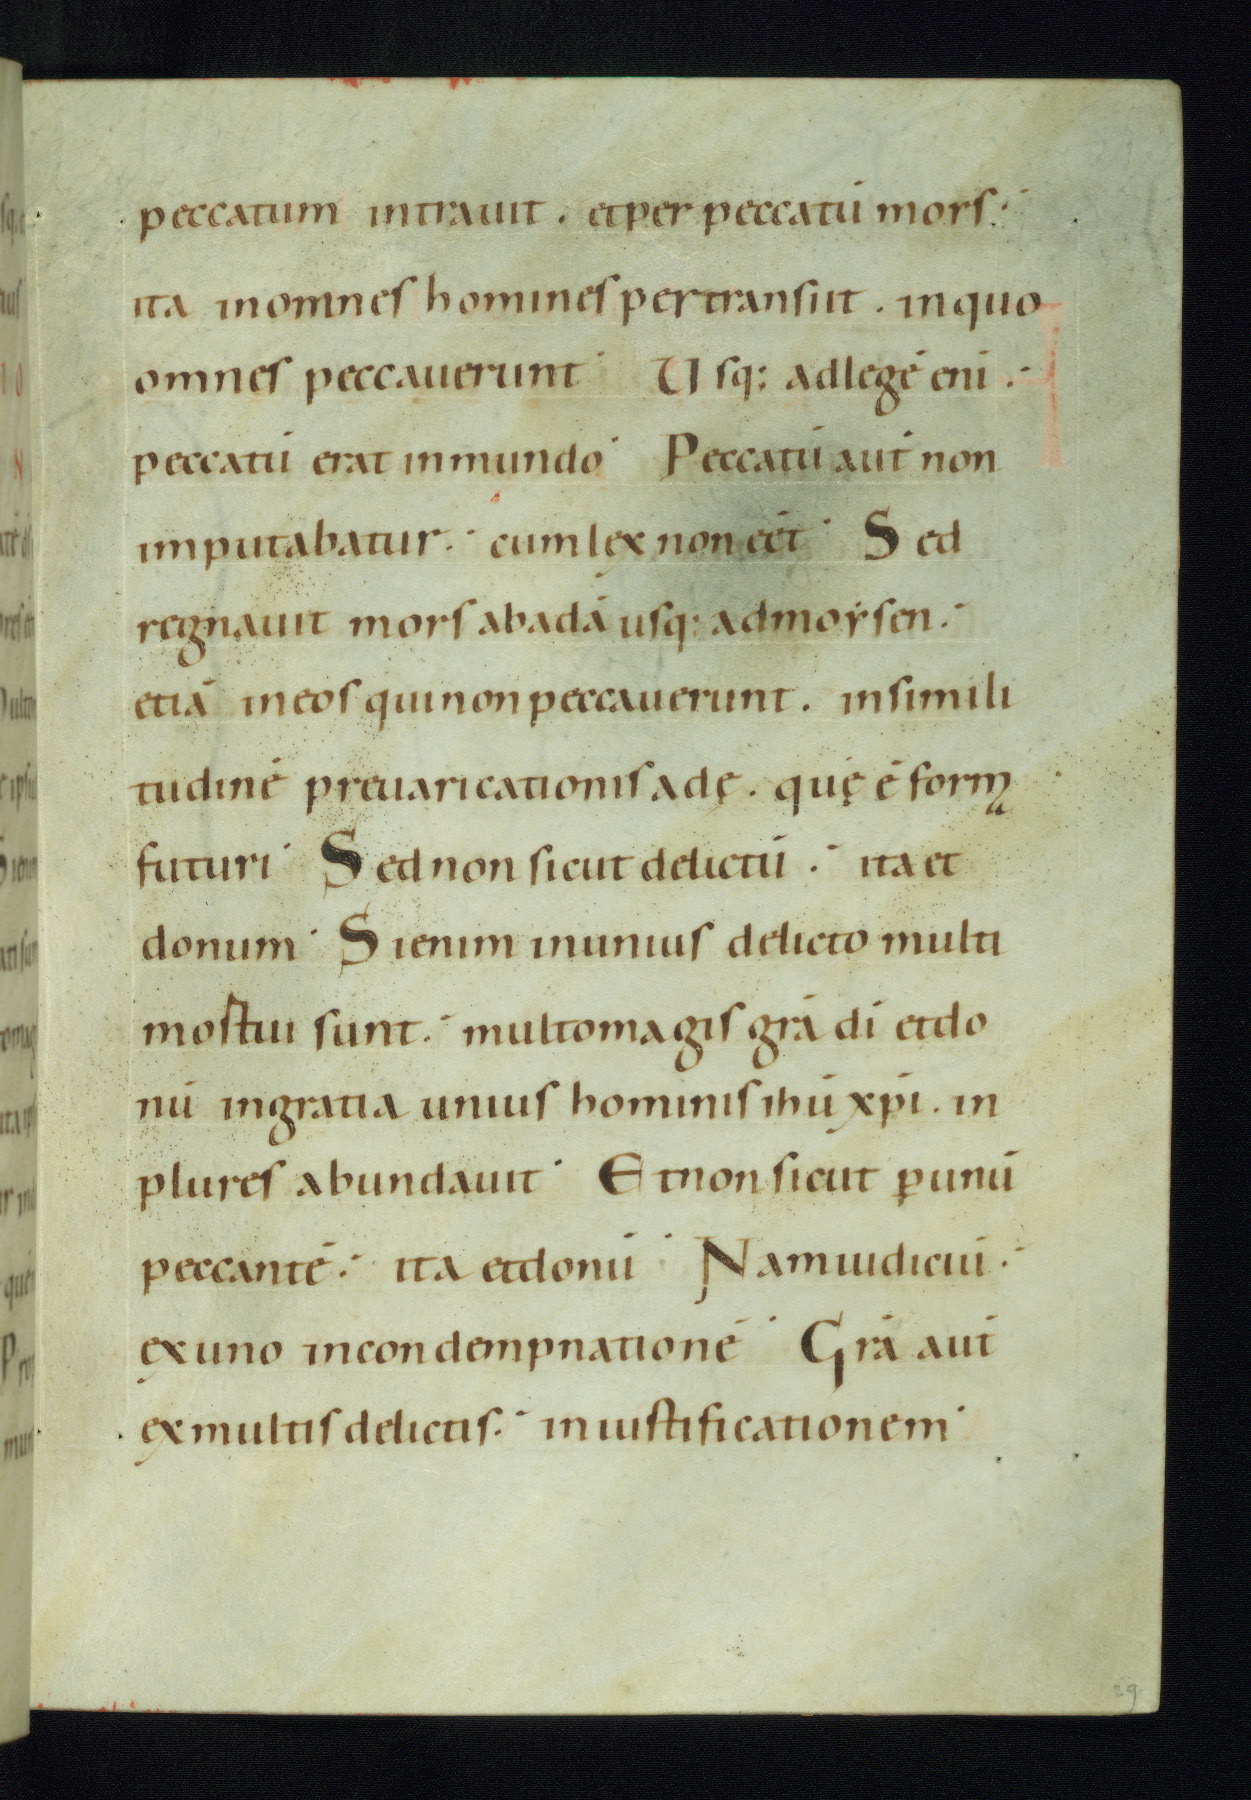 peccatum intrauit . et per peccatū mors .
ita in omnes homines pertransiit . in quo
omnes peccauerunt Usq: ad legē eni .
peccatū erat in mundo Peccatū aut̄ non
imputabatur . cum lex non eēt Sed
regnauit mors ab adā usq: ad moẏsen .
etiā in eos qui non peccauerunt . in simili
tudinē preuaricationis adę . quę ē forma
futuri Sed non sicut delictū . ita et
donum Si enim in unius delicto multi
mortui sunt . multo magis grā dī et do
nū in gratia unius hominis ihū xpī . in
plures abundauit Et non sicut ꝑ unū
peccantē . ita et donū Nam iudiciū .
ex uno in condempnationē Grā aut̄
ex multis delictis . in iustificationem
29